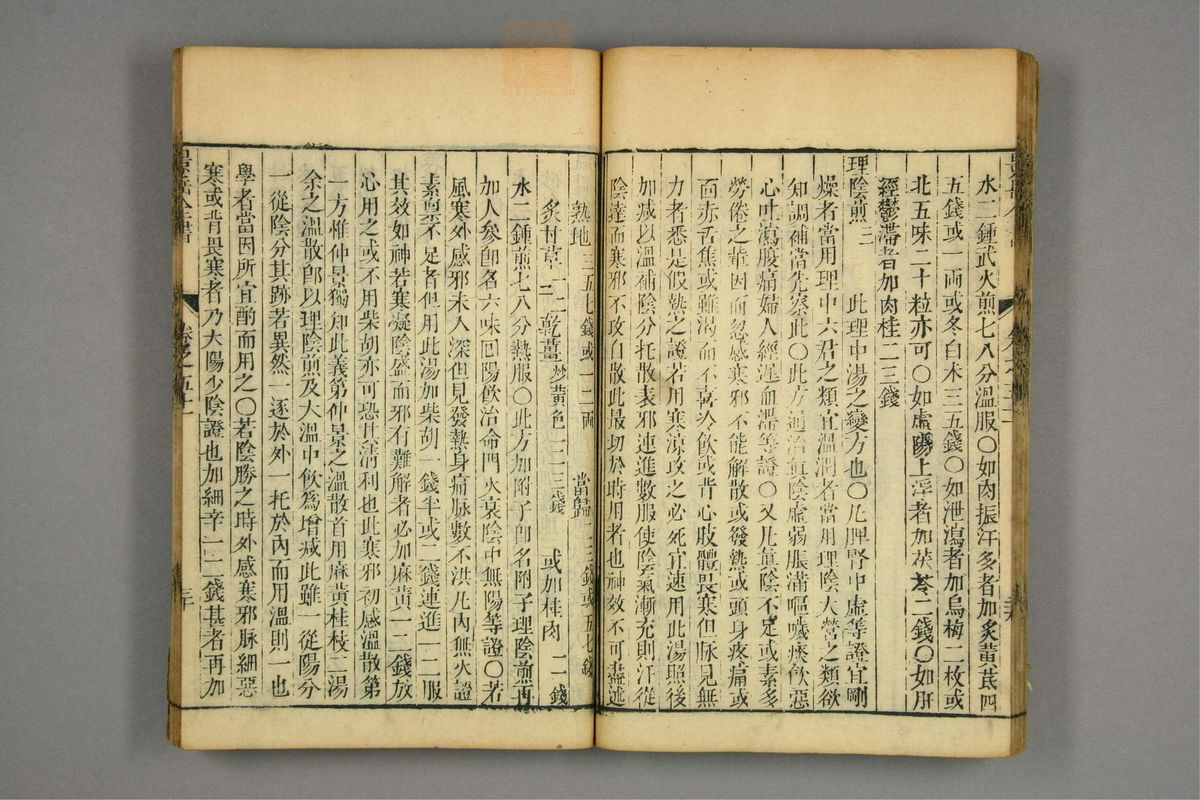 水二鍾武火煎七八分溫服〇如肉振汗多者加炙黃芪四
五錢或一両或冬白朮三五錢〇如泄瀉者加烏梅二枚或
北五味二十粒亦可〇如虛陽上浮者加茯苓二錢〇如肝
經鬱滯者加肉桂二三錢
理陰煎三　此理中湯之變方也〇凡脾腎中虛等證宜剛
燥者當用理中六君之類宜溫潤者當用理陰大營之類欲
知調補當先察此〇此方通治眞陰虛弱脹滿嘔噦痰飲惡
心吐瀉腹痛婦人經遲血滯等證〇又凡眞陰不足或素多
勞倦之輩因而忽感寒邪不能解散或發熱或頭身疼痛或
面赤舌焦或雖渴而不喜冷飲或背心肢體畏寒但脉見無
力者悉是假熱之證若用寒凉攻之必死宜速用此湯照後
加减以溫補陰分托散表邪連進數服使陰氣漸充則汗從
陰達而寒邪不攻自散此最切於時用者也神效不可盡述
熟地三五七錢或一二両　當歸二三錢或五七錢
炙甘草一二錢　乾薑炒黃色一二三錢　或加桂肉一二錢
水二鍾煎七八分熱服〇此方加附子卽名附子理陰煎再
加人參卽名六味囘陽飲治命門火衰陰中無陽等證〇若
風寒外感邪未入深但見發熱身痛脉數不洪凡內無火證
素禀不足者但用此湯加柴胡一錢半或二錢連進一二服
其效如神若寒凝陰盛而邪有難解者必加麻黃一二錢放
心用之或不用柴胡亦可恐其淸利也此寒邪初感溫散第
一方惟仲景獨知此義第仲景之溫散首用麻黃桂枝二湯
余之溫散卽以理陰煎及大溫中飲爲增减此雖一從陽分
一從陰分其跡若異然一逐於外一托於內而用溫則一也
學者當因所宜酌而用之〇若陰勝之時外感寒邪脉細惡
寒或背畏寒者乃大陽少陰證也加細辛一二錢甚者再加